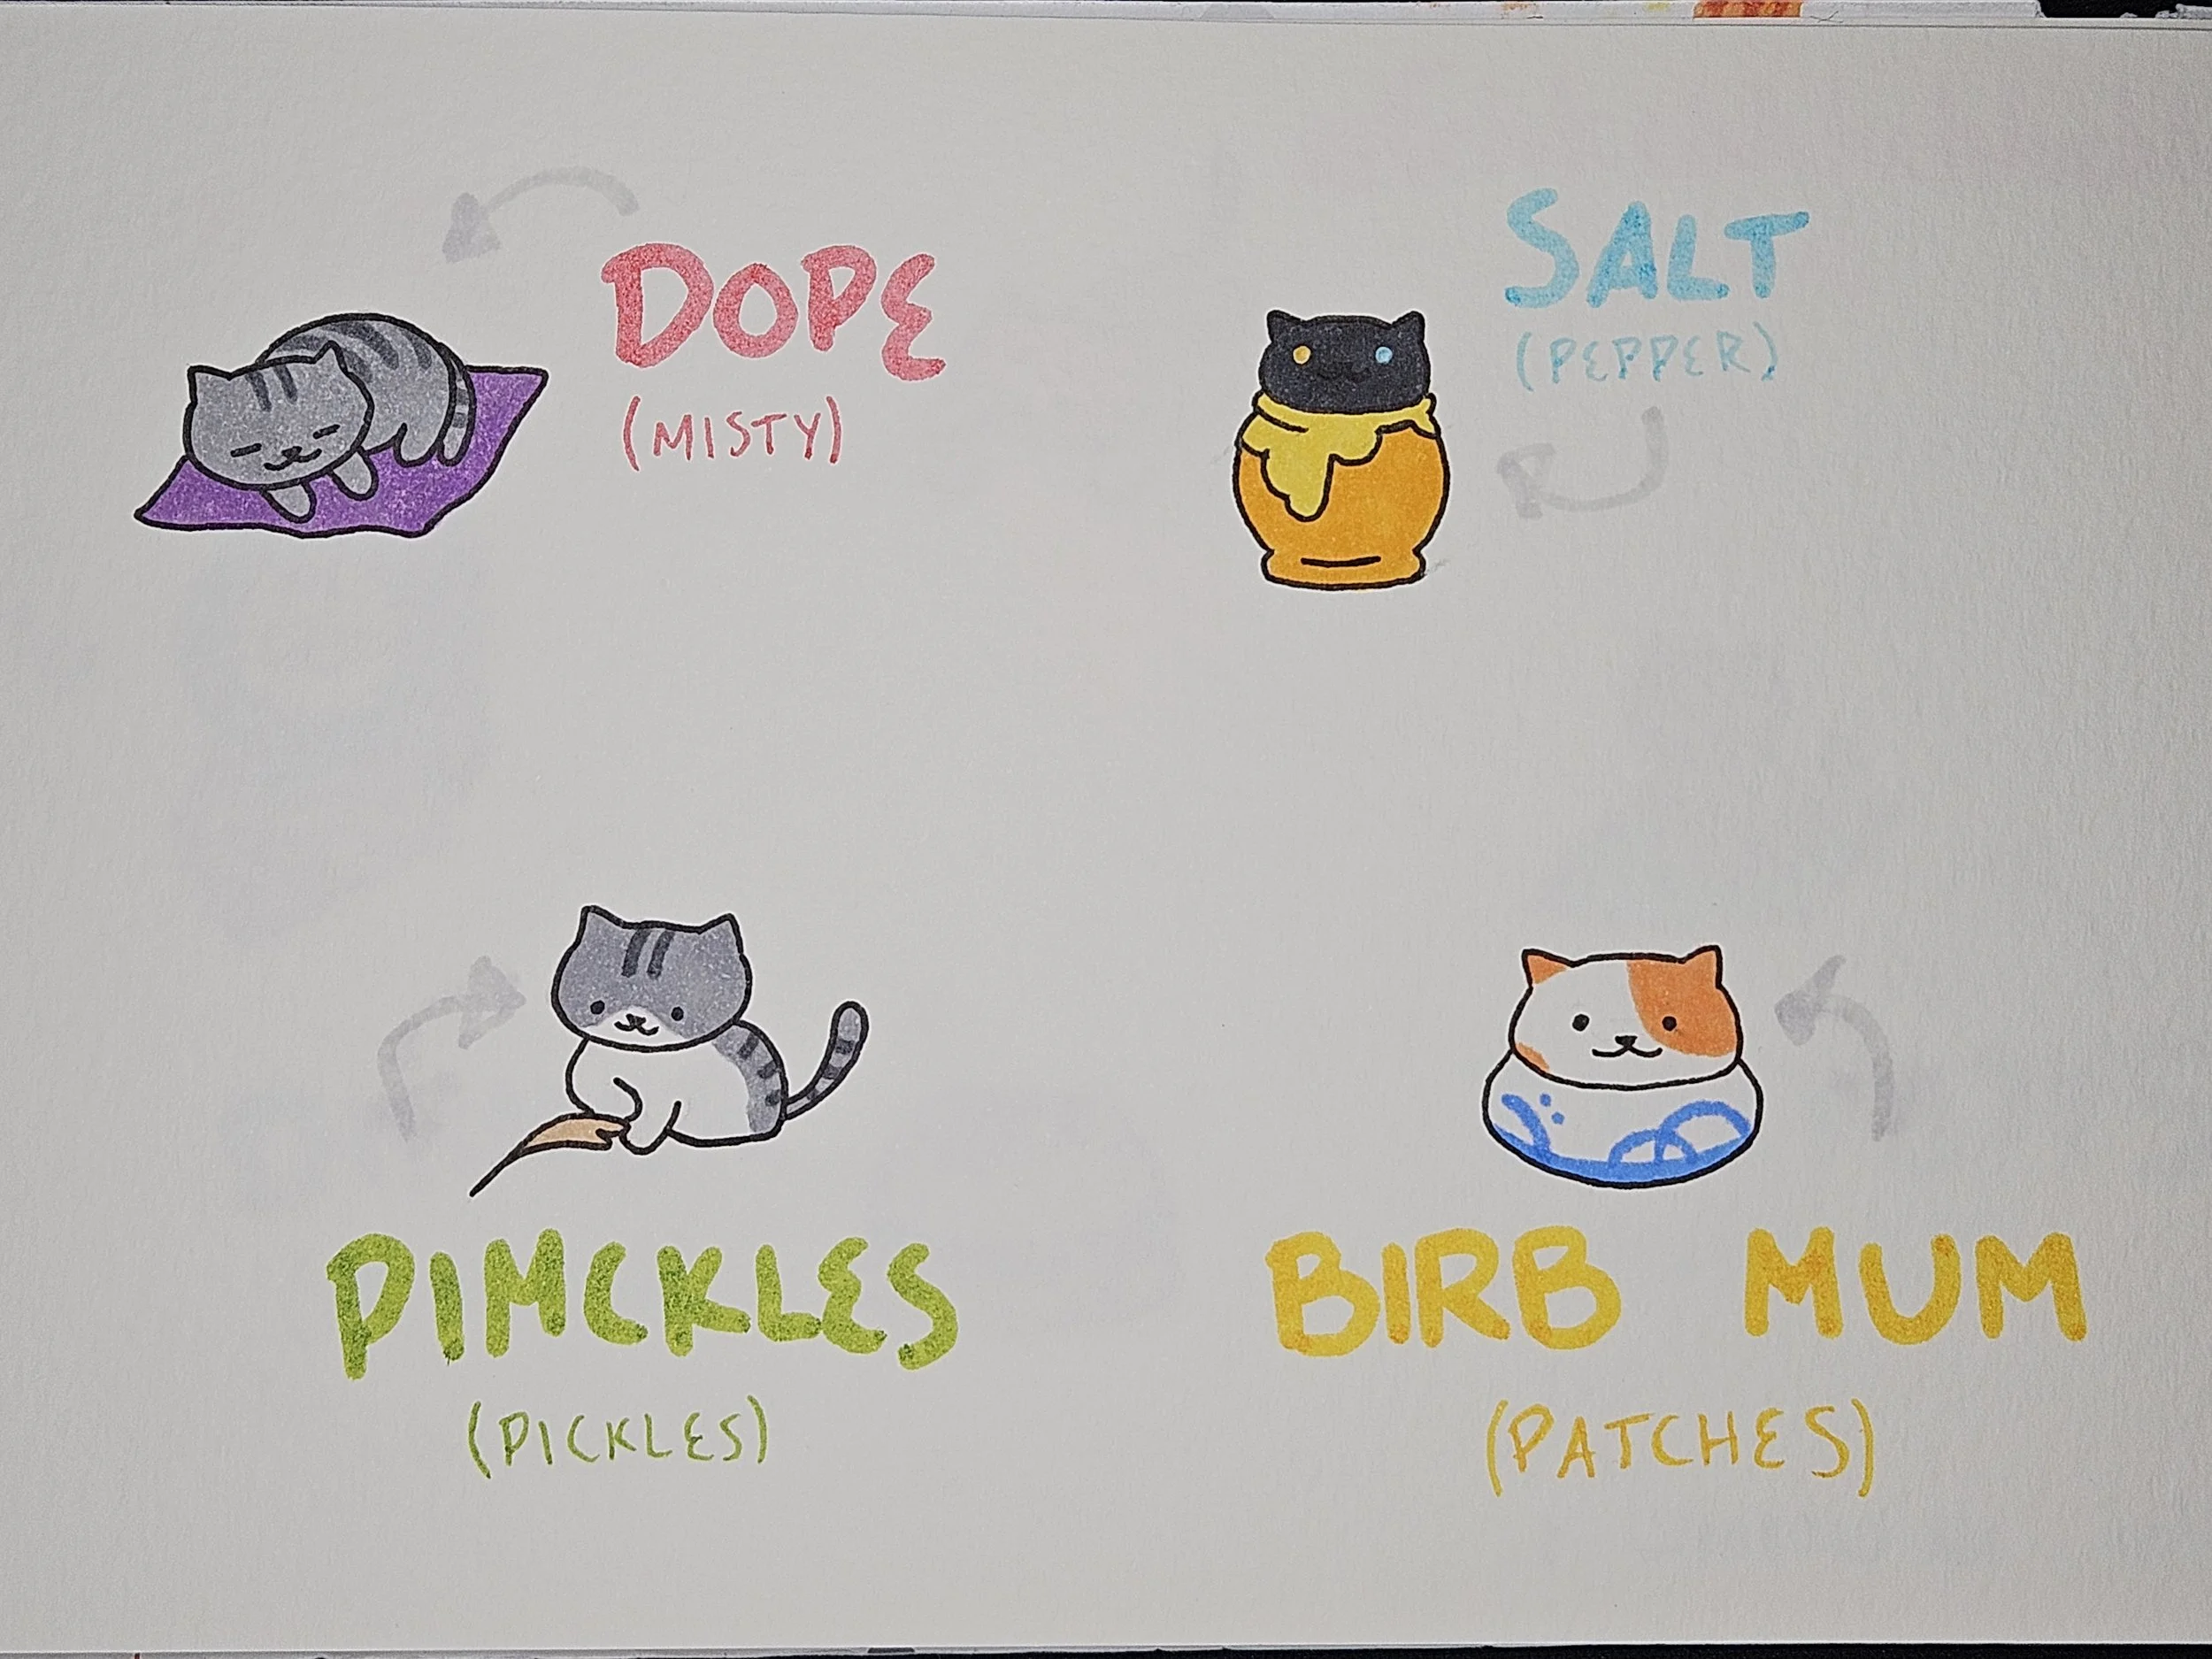 DOPE
(MISTY)
SALT
(PEPPER)
PIMCKLES
(PICKLES)
BIRB MUM
(PATCHES)